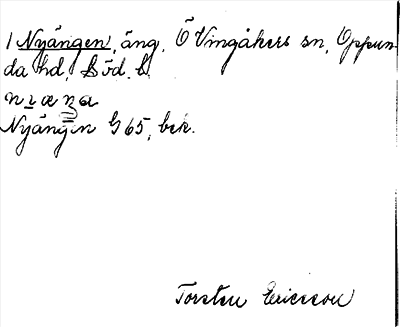 1 Nyängen, äng, Ö Vingåkers sn, Oppun-
da hd, Söd. l.
Nyängen G 65, bek.
Torsten Ericsson